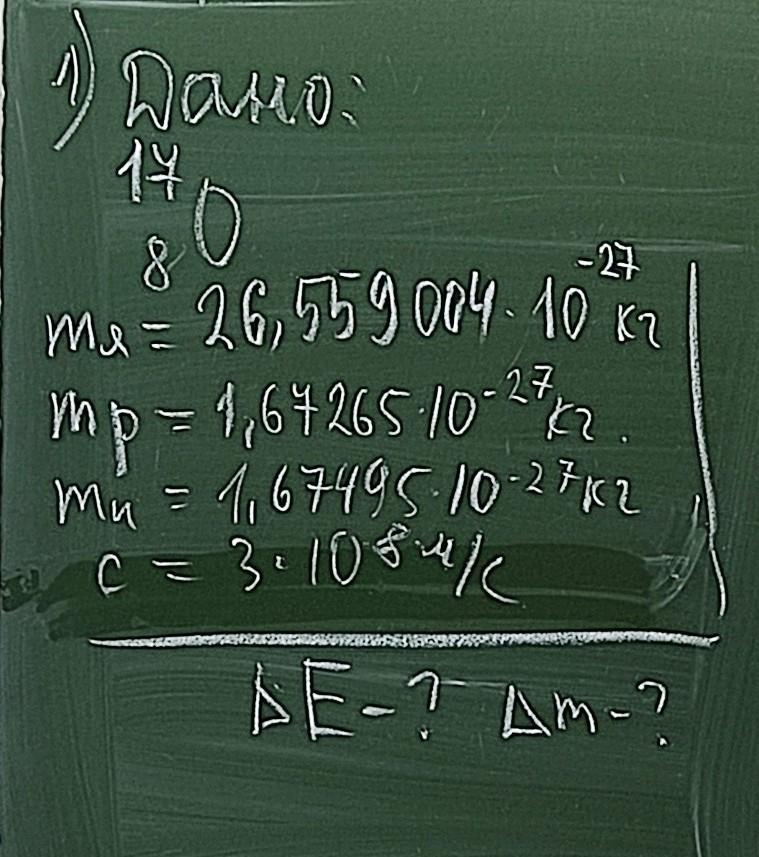 1) Дано:
17
O
8
mя = 26,559004·10⁻²⁷ кг
mp = 1,67265·10⁻²⁷ кг.
mн = 1,67495·10⁻²⁷ кг
c = 3·10⁸ м/с
ΔE-? Δm-?